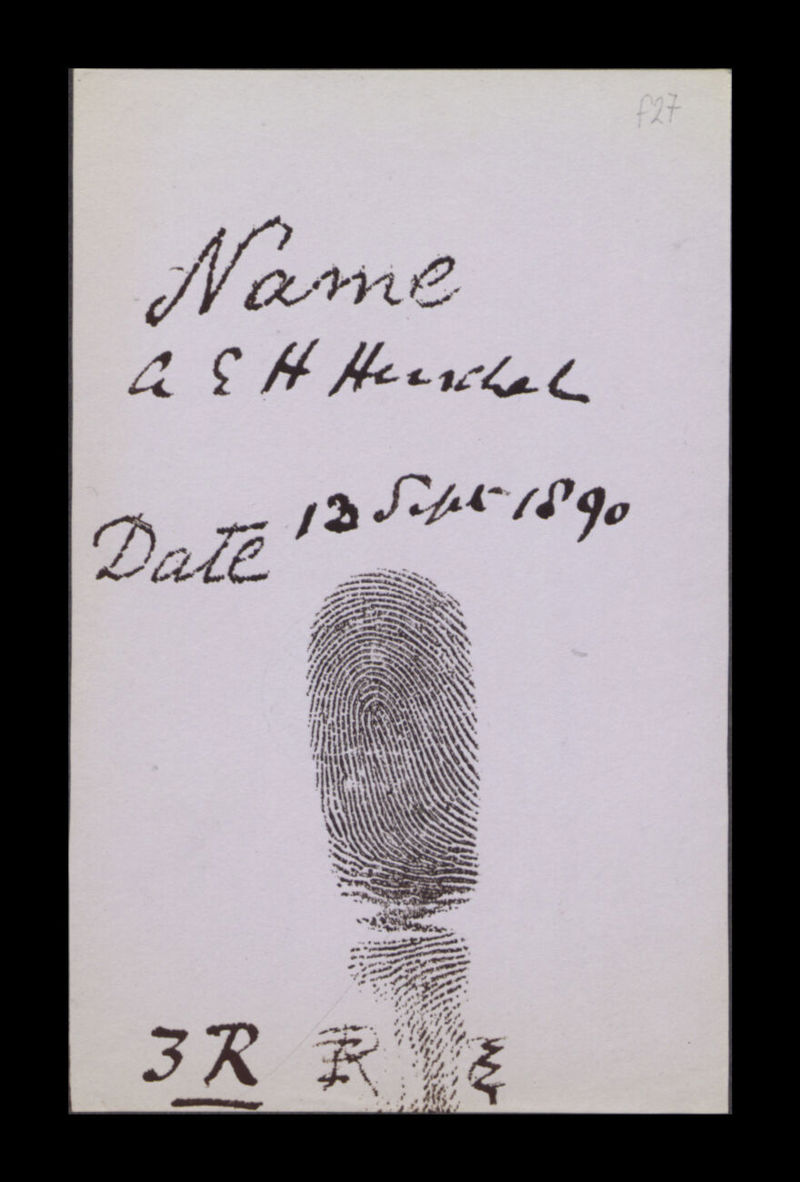 f27
Name
A E H Herschel
Date 13 Sept 1890
3 R R